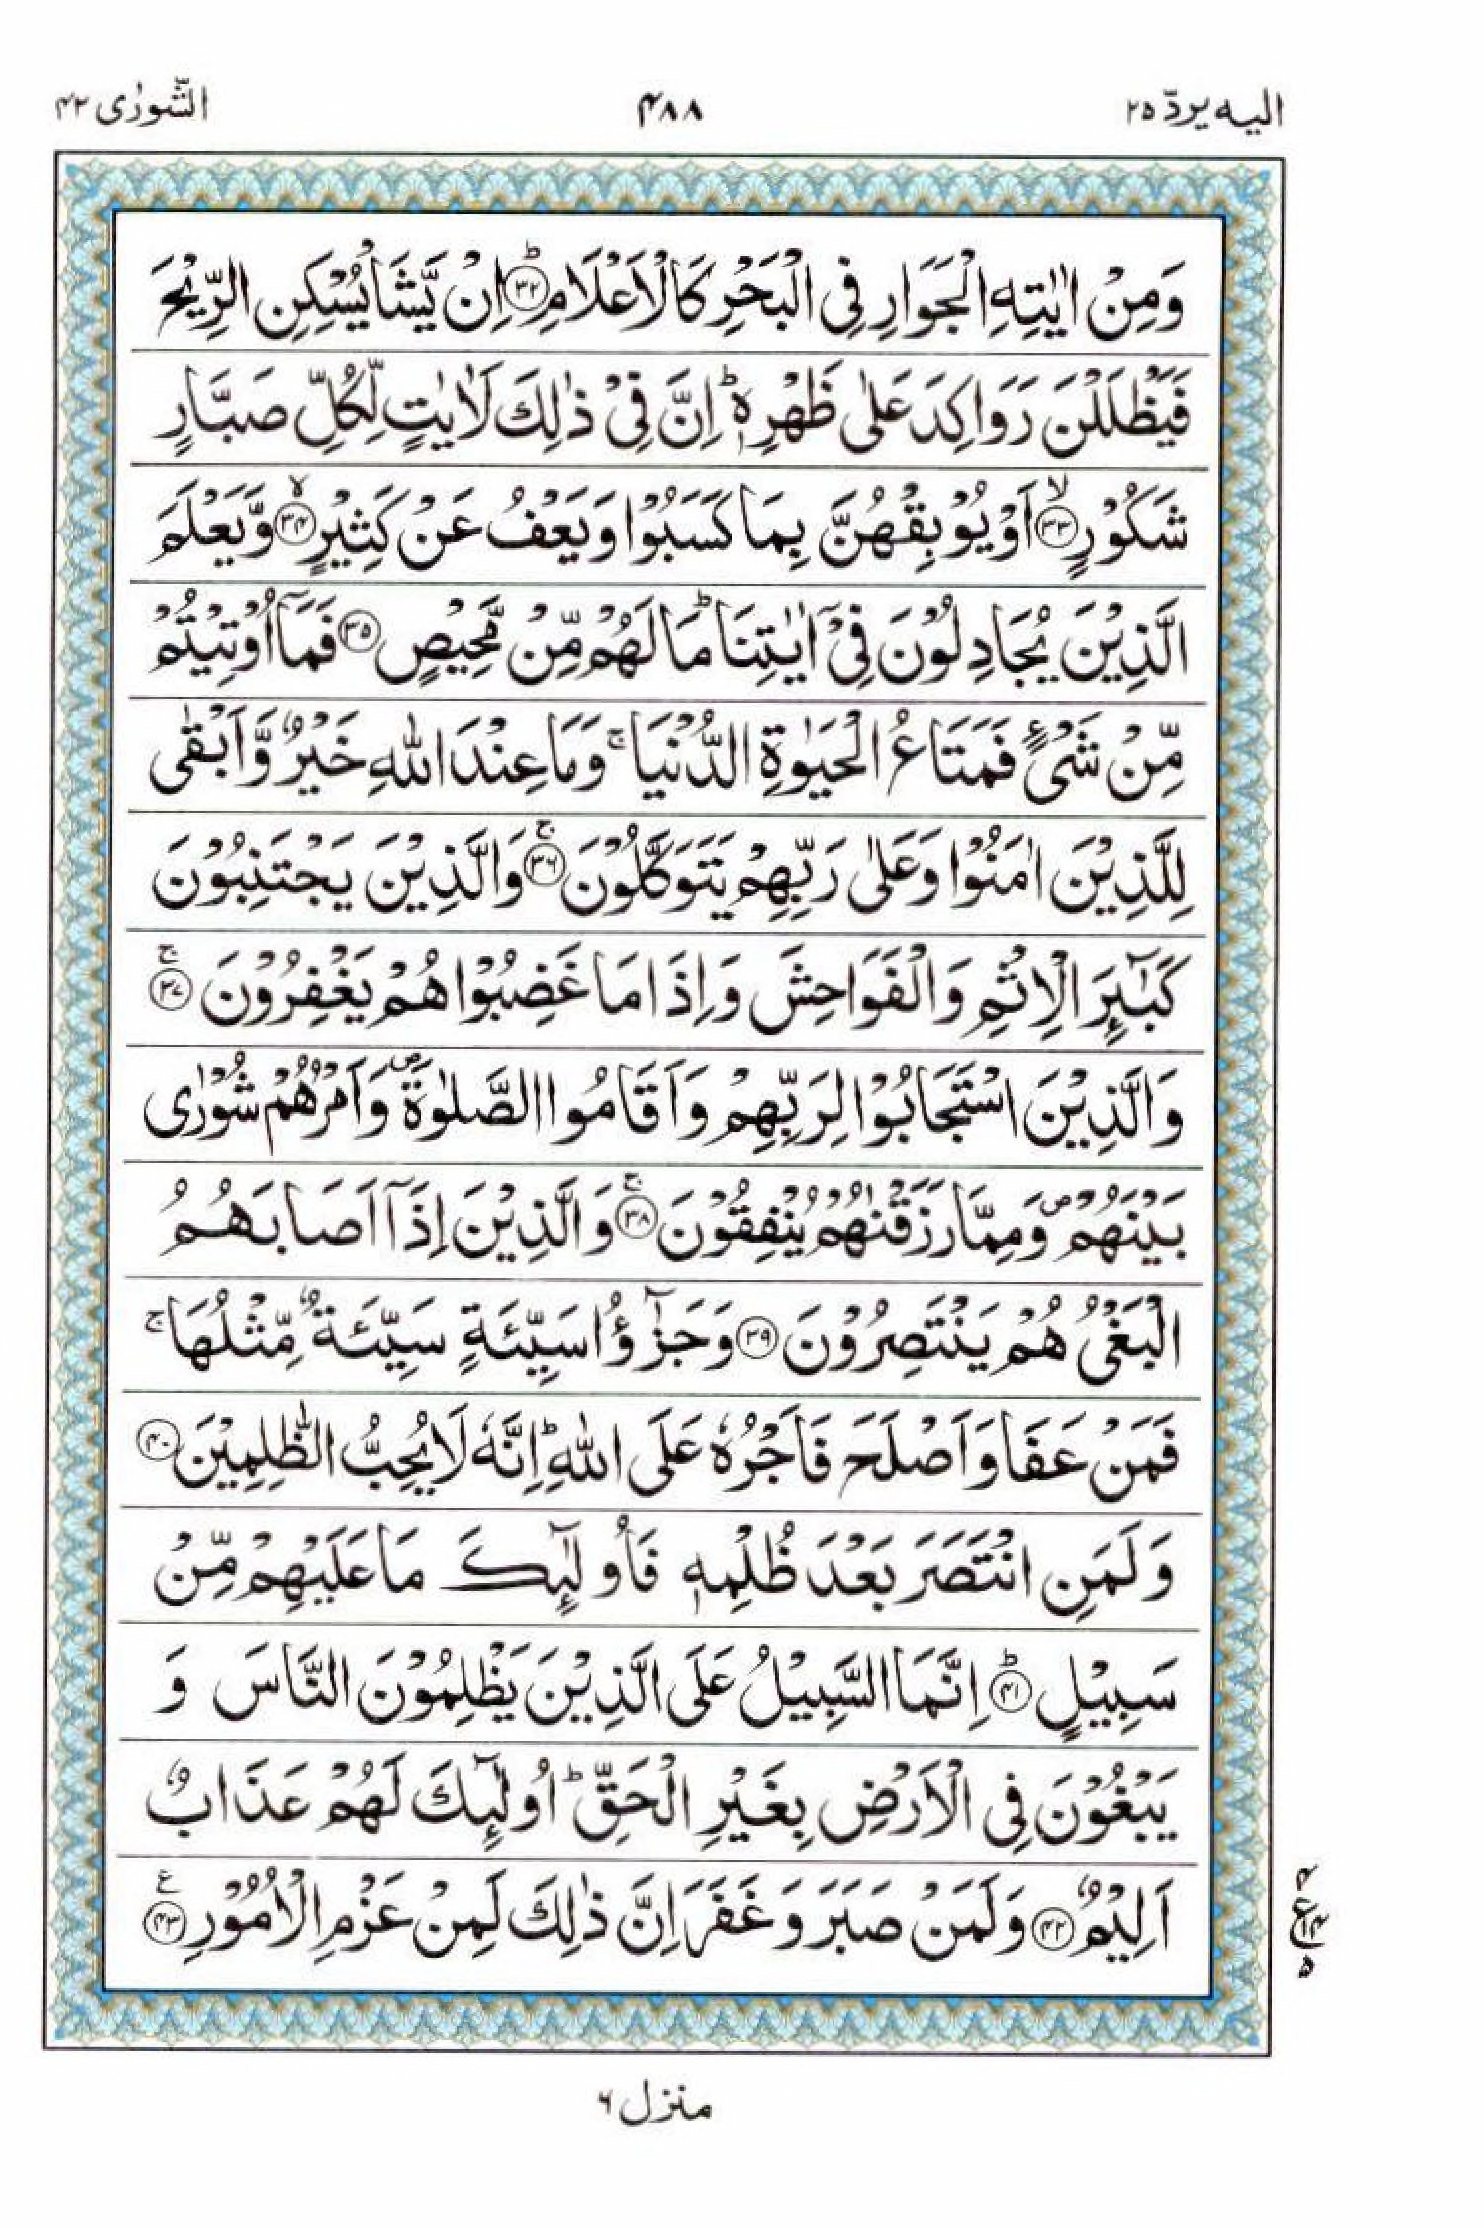 الیه یردّ ۲۵ ۴۸۸ الشّورٰی ۴۲
وَمِنْ اٰیٰتِهِ الْجَوَارِ فِی الْبَحْرِ كَالْاَعْلَامِ ؕ﴿۳۲﴾ اِنْ یَّشَاْ یُسْكِنِ الرِّیْحَ
فَیَظْلَلْنَ رَوَاكِدَ عَلٰی ظَهْرِهٖ ؕ اِنَّ فِیْ ذٰلِكَ لَاٰیٰتٍ لِّكُلِّ صَبَّارٍ
شَكُوْرٍ ۙ﴿۳۳﴾ اَوْ یُوْبِقْهُنَّ بِمَا كَسَبُوْا وَیَعْفُ عَنْ كَثِیْرٍ ۙ﴿۳۴﴾ وَّیَعْلَمَ
الَّذِیْنَ یُجَادِلُوْنَ فِیْۤ اٰیٰتِنَا ؕ مَا لَهُمْ مِّنْ مَّحِیْصٍ ﴿۳۵﴾ فَمَاۤ اُوْتِیْتُمْ
مِّنْ شَیْءٍ فَمَتَاعُ الْحَیٰوةِ الدُّنْیَا ۚ وَمَا عِنْدَ اللهِ خَیْرٌ وَّاَبْقٰی
لِلَّذِیْنَ اٰمَنُوْا وَعَلٰی رَبِّهِمْ یَتَوَكَّلُوْنَ ۚ﴿۳۶﴾ وَالَّذِیْنَ یَجْتَنِبُوْنَ
كَبٰٓىِٕرَ الْاِثْمِ وَالْفَوَاحِشَ وَاِذَا مَا غَضِبُوْا هُمْ یَغْفِرُوْنَ ۚ﴿۳۷﴾
وَالَّذِیْنَ اسْتَجَابُوْا لِرَبِّهِمْ وَاَقَامُوا الصَّلٰوةَ ۪ وَاَمْرُهُمْ شُوْرٰی
بَیْنَهُمْ ۪ وَمِمَّا رَزَقْنٰهُمْ یُنْفِقُوْنَ ۚ﴿۳۸﴾ وَالَّذِیْنَ اِذَاۤ اَصَابَهُمُ
الْبَغْیُ هُمْ یَنْتَصِرُوْنَ ﴿۳۹﴾ وَجَزٰٓؤُا سَیِّئَةٍ سَیِّئَةٌ مِّثْلُهَا ۚ
فَمَنْ عَفَا وَاَصْلَحَ فَاَجْرُهٗ عَلَی اللهِ ؕ اِنَّهٗ لَا یُحِبُّ الظّٰلِمِیْنَ ﴿۴۰﴾
وَلَمَنِ انْتَصَرَ بَعْدَ ظُلْمِهٖ فَاُولٰٓىِٕكَ مَا عَلَیْهِمْ مِّنْ
سَبِیْلٍ ؕ﴿۴۱﴾ اِنَّمَا السَّبِیْلُ عَلَی الَّذِیْنَ یَظْلِمُوْنَ النَّاسَ وَ
یَبْغُوْنَ فِی الْاَرْضِ بِغَیْرِ الْحَقِّ ؕ اُولٰٓىِٕكَ لَهُمْ عَذَابٌ
اَلِیْمٌ ﴿۴۲﴾ وَلَمَنْ صَبَرَ وَغَفَرَ اِنَّ ذٰلِكَ لَمِنْ عَزْمِ الْاُمُوْرِ ﴿۴۳﴾ ع
۴ ع ۱۴ ۵
منزل ۶